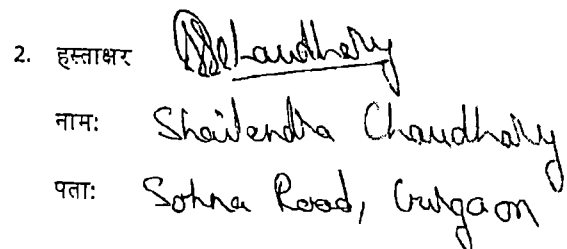 2. हस्ताक्षर Chaudhary
नाम: Shailendra Chaudhary
पता: Sohna Road, Gurgaon